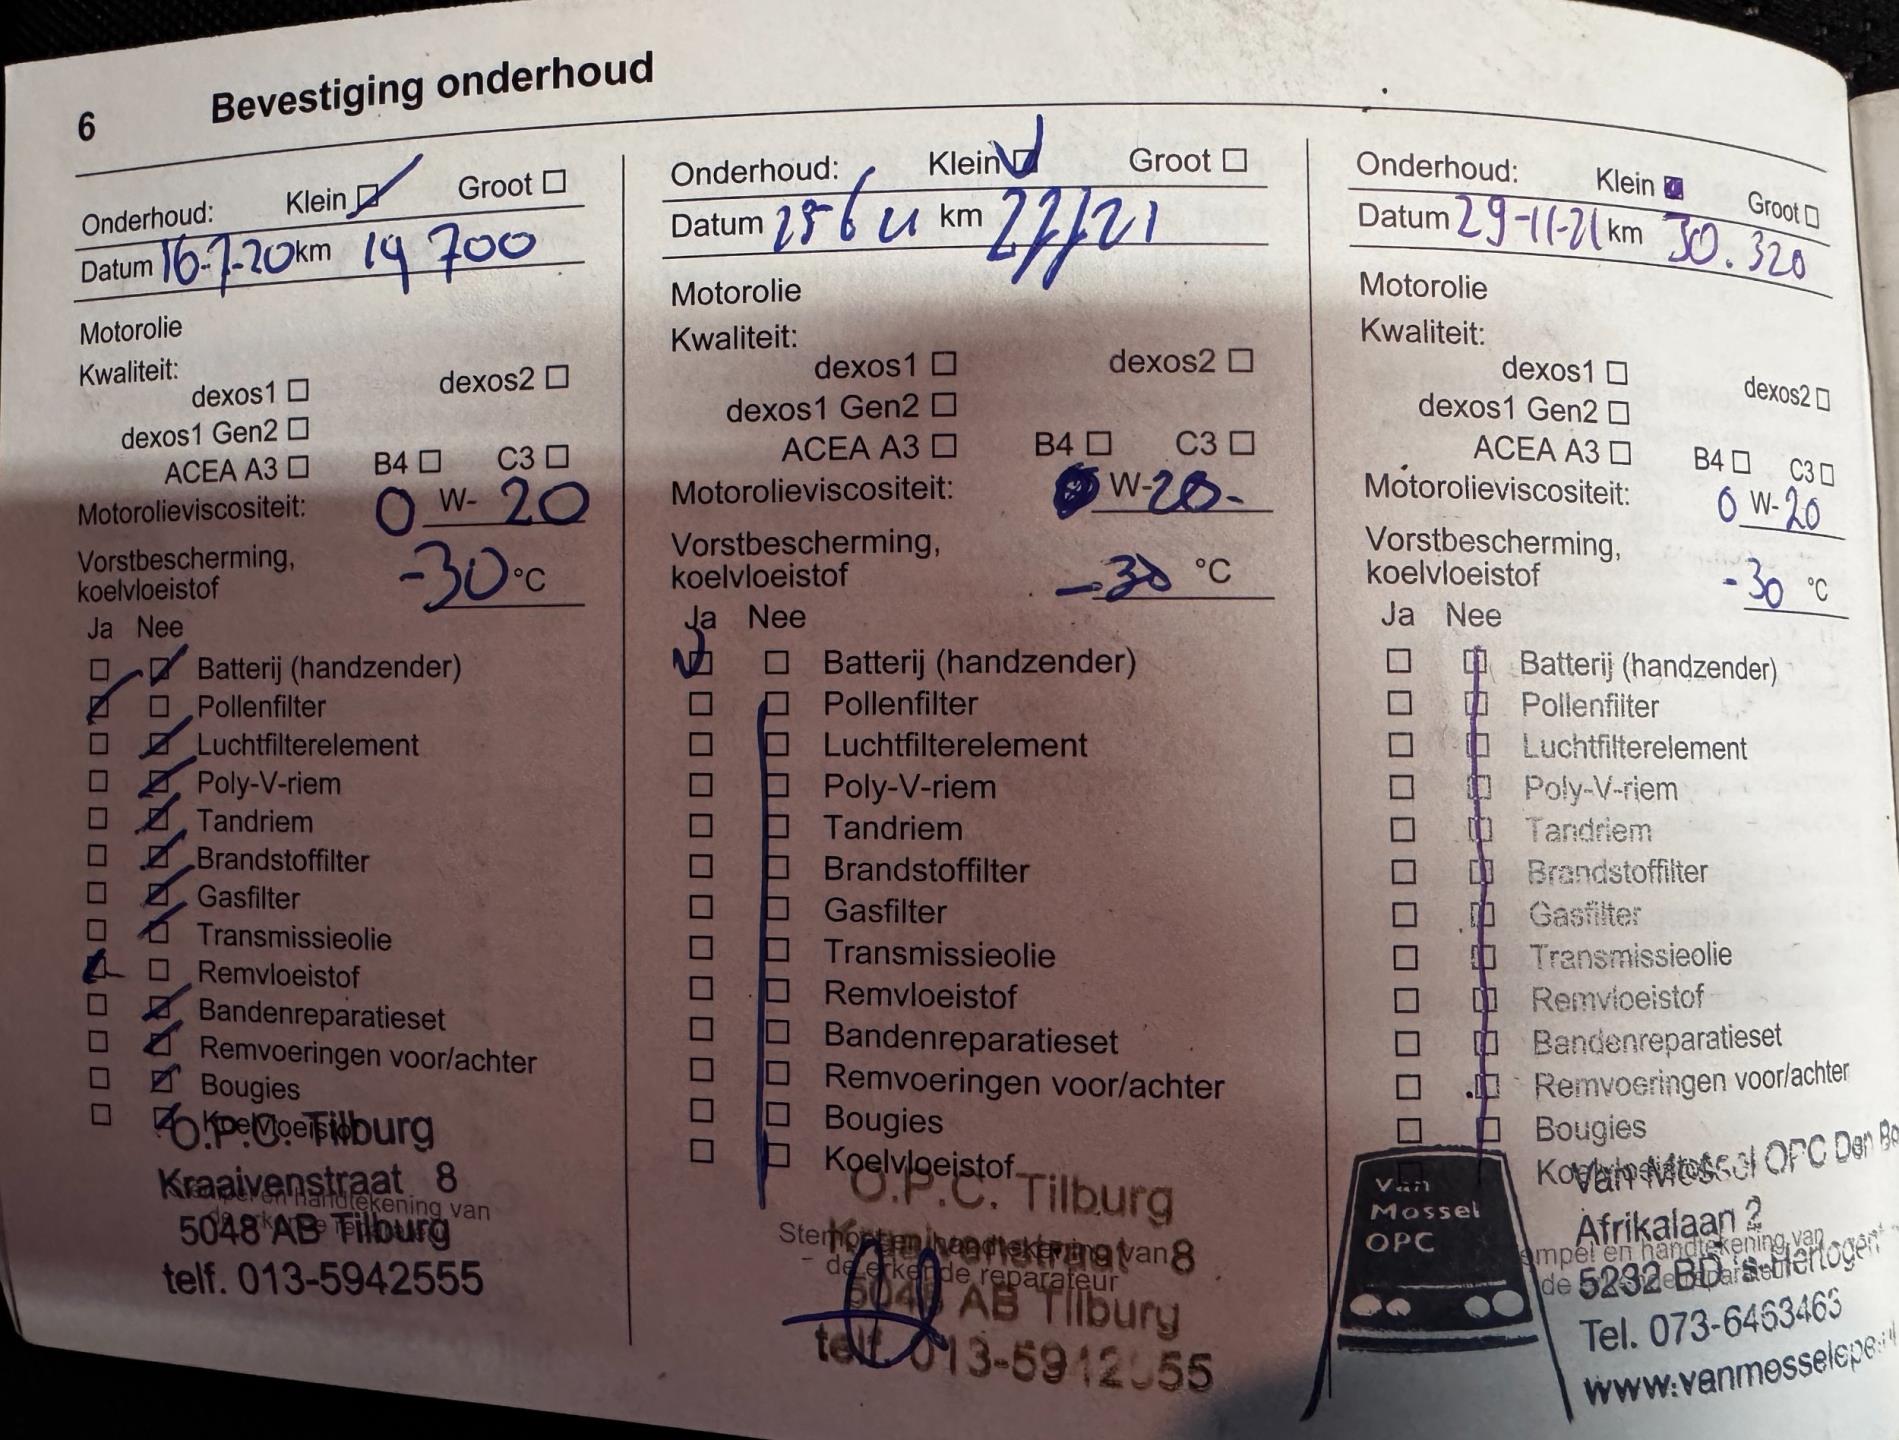 6 Bevestiging onderhoud
Onderhoud: Klein Groot
Datum 16-7-20 km 19 700
Motorolie
Kwaliteit:
dexos1 dexos2
dexos1 Gen2
ACEA A3 B4 C3
Motorolieviscositeit: 0 W- 20
Vorstbescherming,
koelvloeistof -30 °C
Ja Nee
Batterij (handzender)
Pollenfilter
Luchtfilterelement
Poly-V-riem
Tandriem
Brandstoffilter
Gasfilter
Transmissieolie
Remvloeistof
Bandenreparatieset
Remvoeringen voor/achter
Bougies
Koelvloeistof
O.P.C. Tilburg
Kraaivenstraat 8
Stempel en handtekening van
5048 AB Tilburg
telf. 013-5942555
Onderhoud: Klein Groot
Datum 25 6 21 km
Motorolie
Kwaliteit:
dexos1 dexos2
dexos1 Gen2
ACEA A3 B4 C3
Motorolieviscositeit: 0 W-20-
Vorstbescherming,
koelvloeistof -30 °C
Ja Nee
Batterij (handzender)
Pollenfilter
Luchtfilterelement
Poly-V-riem
Tandriem
Brandstoffilter
Gasfilter
Transmissieolie
Remvloeistof
Bandenreparatieset
Remvoeringen voor/achter
Bougies
Koelvloeistof
O.P.C. Tilburg
Kraaivenstraat 8
Stempel en handtekening van
de erkende reparateur
5048 AB Tilburg
telf. 013-5942555
Onderhoud: Klein Groot
Datum 29-11-21 km 30.320
Motorolie
Kwaliteit:
dexos1 dexos2
dexos1 Gen2
ACEA A3 B4 C3
Motorolieviscositeit: 0 W-20
Vorstbescherming,
koelvloeistof -30 °C
Ja Nee
Batterij (handzender)
Pollenfilter
Luchtfilterelement
Poly-V-riem
Tandriem
Brandstoffilter
Gasfilter
Transmissieolie
Remvloeistof
Bandenreparatieset
Remvoeringen voor/achter
Bougies
Koelvloeistof
Van Mossel OPC
Van Mossel OPC Den
Afrikalaan 2
empel en handtekening van
5232 BD 's-Hertogen
Tel. 073-6463463
www.vanmosselope